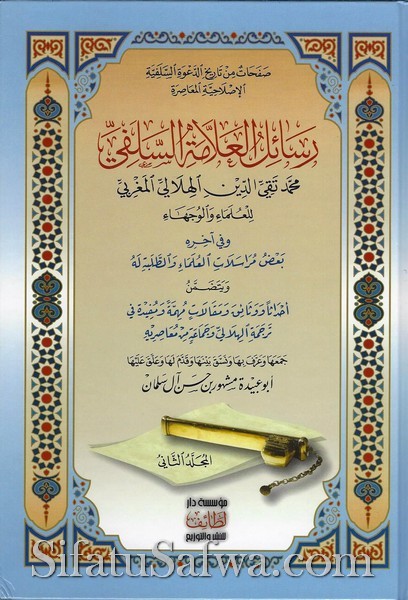 صَفَحَاتٌ مِنْ تَارِيخِ الدَّعْوَةِ السَّلَفِيَّةِ
الإِصْلَاحِيَّةِ المُعَاصِرَةِ
رَسَائِلُ العَلَّامَةِ السَّلَفِيِّ
مُحَمَّد تَقِيِّ الدِّينِ الهِلَالِيِّ المَغْرِبِيِّ
لِلْعُلَمَاءِ وَالوُجَهَاءِ
وَفِي آخِرِهِ
بَعْضُ مُرَاسَلَاتِ العُلَمَاءِ وَالطَّلَبَةِ لَهُ
وَيَتَضَمَّنُ
أَحْدَاثًا وَوَثَائِقَ وَمَقَالَاتٍ مُهِمَّةً وَمُفِيدَةً فِي
تَرْجَمَةِ الهِلَالِيِّ وَجَمَاعَةٍ مِنْ مُعَاصِرِيهِ
جَمَعَهَا وَعَرَّفَ بِهَا وَنَسَّقَ بَيْنَهَا وَقَدَّمَ لَهَا وَعَلَّقَ عَلَيْهَا
أبو عبيدة مشهور بن حسن آل سلمان
المُجَلَّدُ الثَّانِي
مؤسسة دار
لطائف
للنشر والتوزيع
SifatuSafwa.com